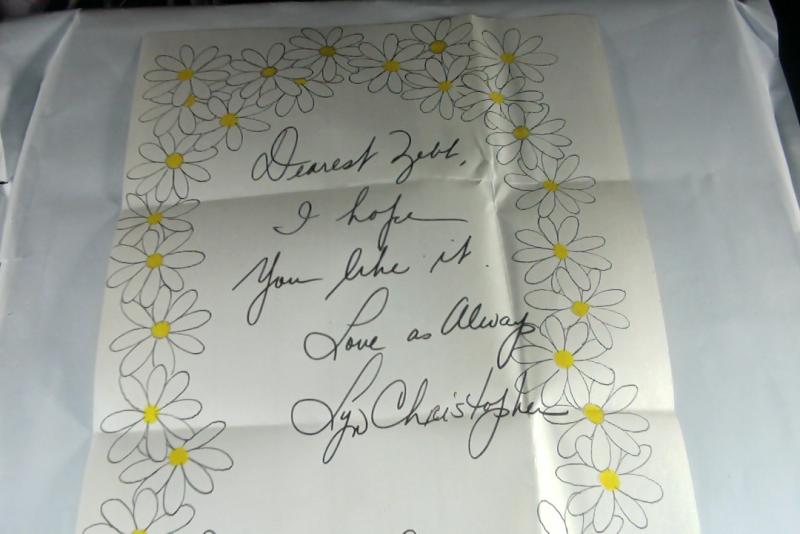 Dearest Zebb,
I hope
You like it.
Love as Always
Lyn Christopher